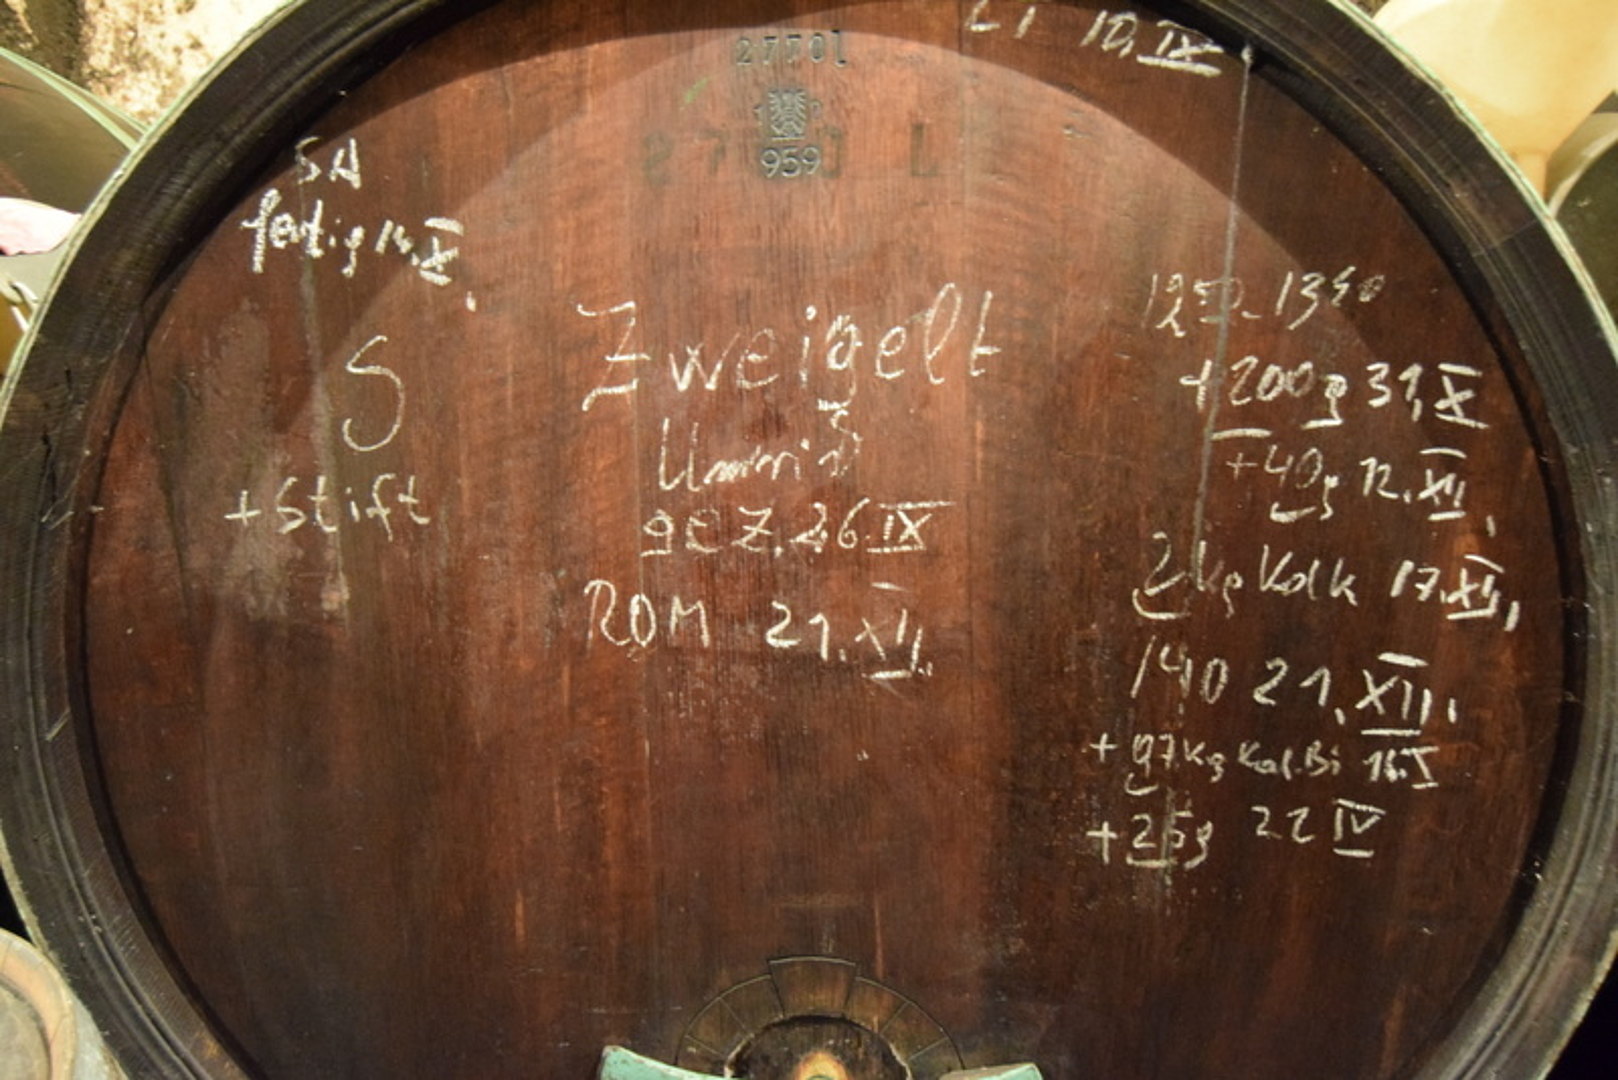 10. IX
2770 l
959
SA
fertig 14. X.
S
+Stift
Zweigelt
gez. 26. IX
ROM 21. XII.
1250-1350
+200g 31, X
+40g 12. XII,
2kg Kalk 17. XII,
140 21. XII.
+ 97kg Kal.Bi 16. I
+25g 22 IV